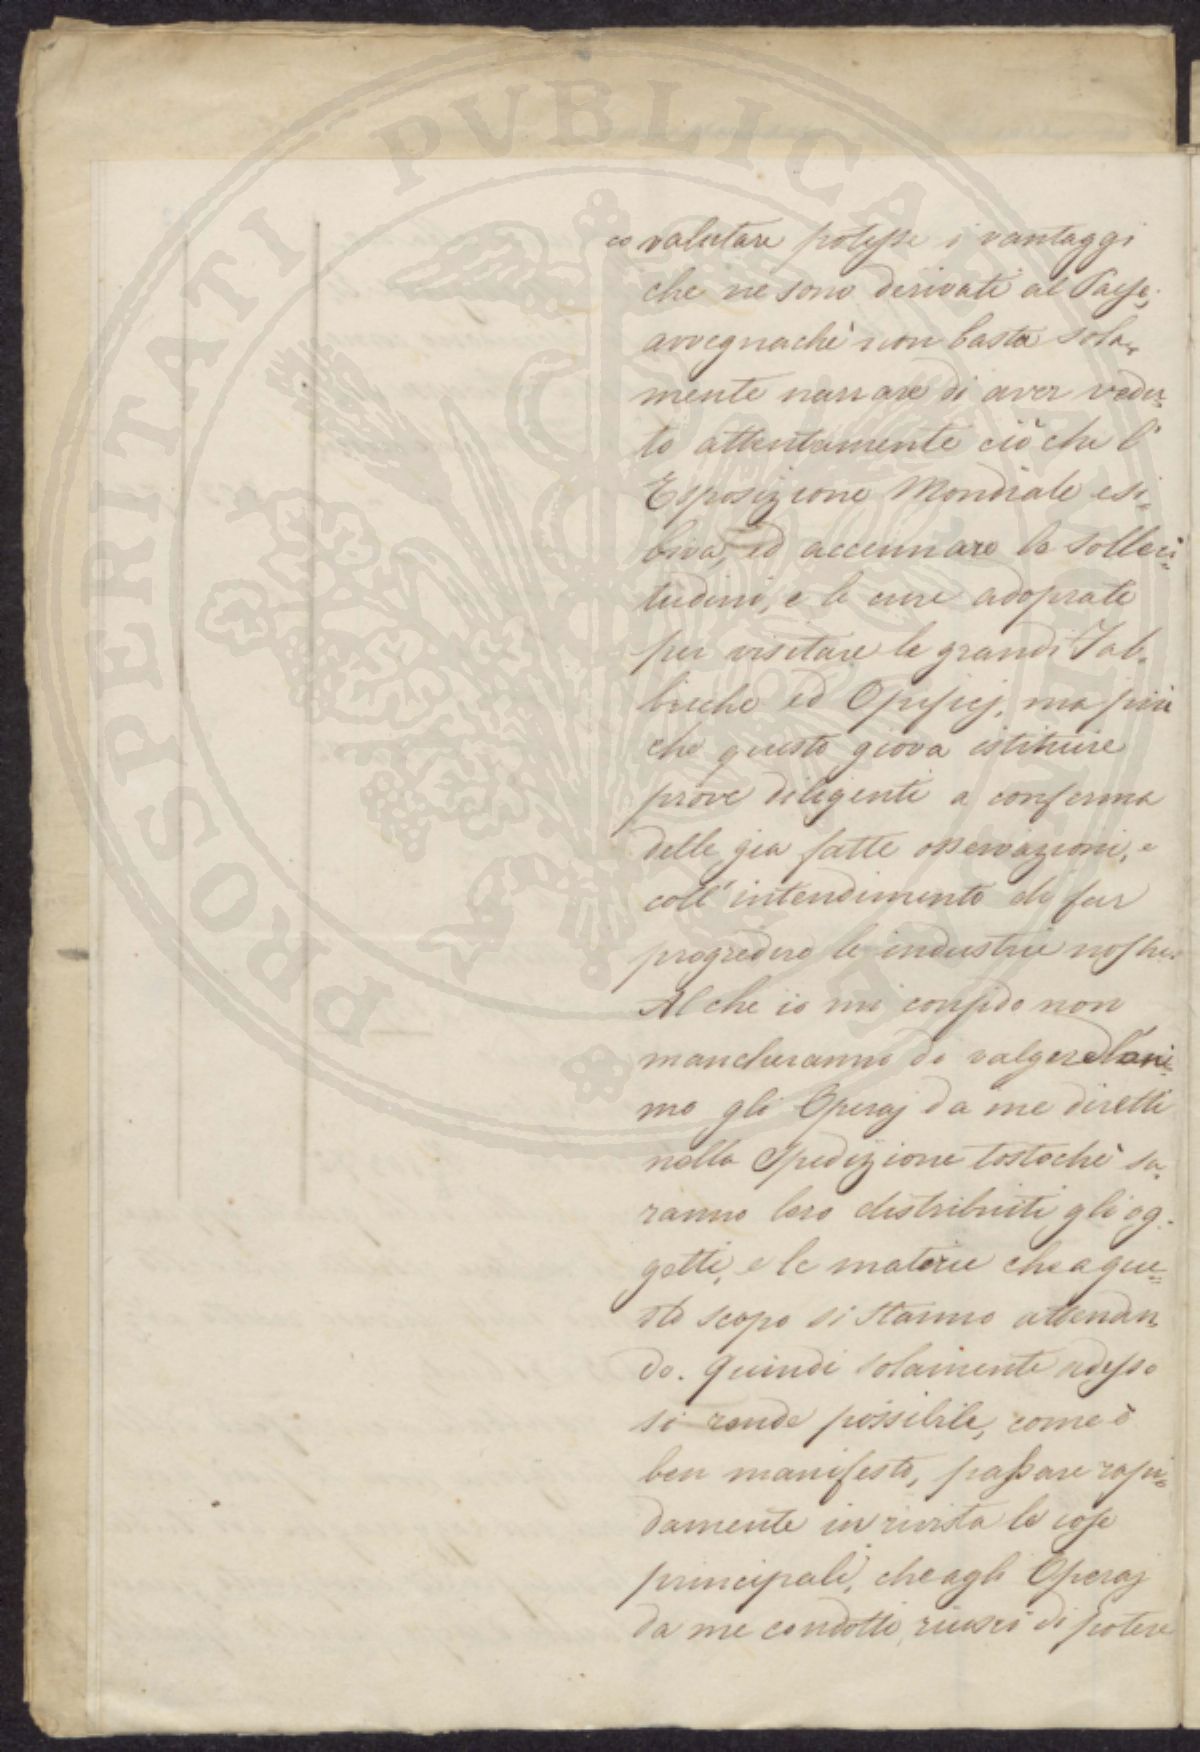 PROSPERITATI PUBLICAE
co valutare potesse i vantaggi
che ne sono derivati al Paese;
avvegnachè non basta sola-
mente narrare di aver vedu-
to attentamente ciò che l'
Esposizione Mondiale esi-
biva, ed accennare le solleci-
tudini, e le cure adoprate
per visitare le grandi Fab-
briche ed Opificj, ma più
che questo giova istituire
prove diligenti a conferma
delle già fatte osservazioni, e
coll'intendimento di far
progredire le industrie nostre.
Al che io mi confido non
mancheranno di volgere l'ani-
mo gli Operaj da me diretti
nella Spedizione tostochè sa-
ranno loro distribuiti gli og-
getti, e le materie che a que-
sto scopo si stanno attenden
do. Quindi solamente adesso
si rende possibile, come è
ben manifesto, passare rapi-
damente in rivista le cose
principali, che agli Operaj
da me condotti, riuscì di potere